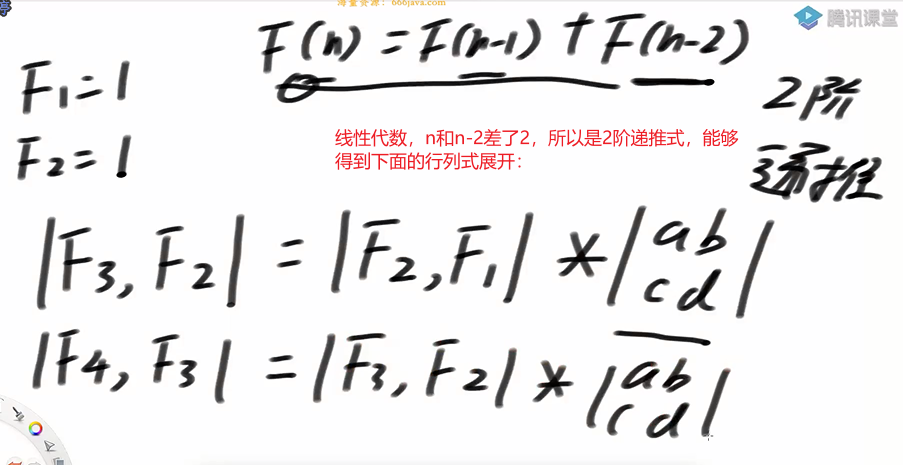 海量资源：666java.com
腾讯课堂
F(n) = F(n-1) + F(n-2)
F1=1
2阶
F2=1
线性代数，n和n-2差了2，所以是2阶递推式，能够
得到下面的行列式展开：
|F3, F2| = |F2, F1| * |a b
c d|
|F4, F3| = |F3, F2| * |a b
c d|